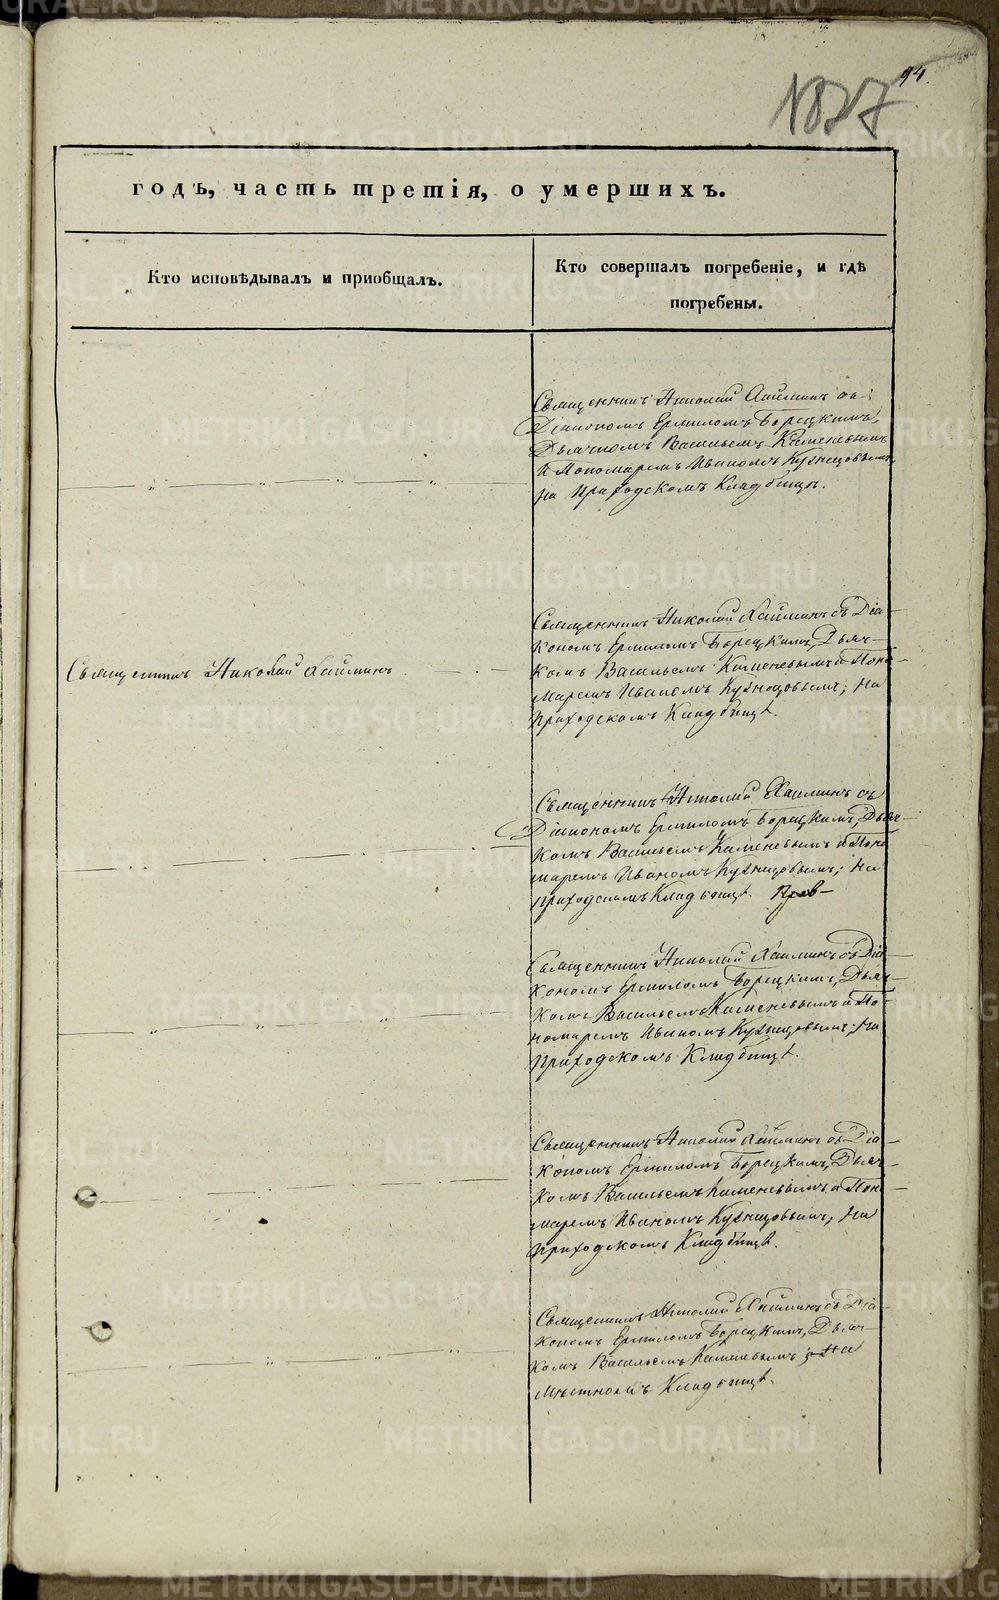 94.
1837
годъ, часть третія, о умершихъ.
Кто исповѣдывалъ и приобщалъ.
Кто совершалъ погребеніе, и гдѣ
погребены.
Священникъ Николай съ
Діакономъ Ермиломъ Борецкимъ,
Дьячкомъ Васильемъ Каменевымъ
и Пономаремъ Иваномъ Кузнецовымъ
на Приходскомъ Кладбищѣ.
Священникъ Николай Хаилминъ
Священникъ Николай съ Діа-
кономъ Ермиломъ Борецкимъ, Дьяч-
комъ Васильемъ Каменевымъ и Поно-
маремъ Иваномъ Кузнецовымъ; на
Приходскомъ Кладбищѣ.
Священникъ Николай съ
Діакономъ Ермиломъ Борецкимъ, Дьяч-
комъ Васильемъ Каменевымъ и Поно
маремъ Иваномъ Кузнецовымъ; на
приходскомъ Кладбищѣ.
Священникъ Николай съ Діа-
кономъ Ермиломъ Борецкимъ, Дьяч-
комъ Васильемъ Каменевымъ и По-
номаремъ Иваномъ Кузнецовымъ; на
Приходскомъ Кладбищѣ.
Священникъ Николай съ Діа-
кономъ Ермиломъ Борецкимъ, Дьяч-
комъ Васильемъ Каменевымъ и Поно-
маремъ Иваномъ Кузнецовымъ; на
Приходскомъ Кладбищѣ.
Священникъ Николай съ Діа-
кономъ Ермиломъ Борецкимъ, Дьяч-
комъ Васильемъ Каменевымъ; на
мѣстномъ Кладбищѣ.
METRIKI.GASO-URAL.RU